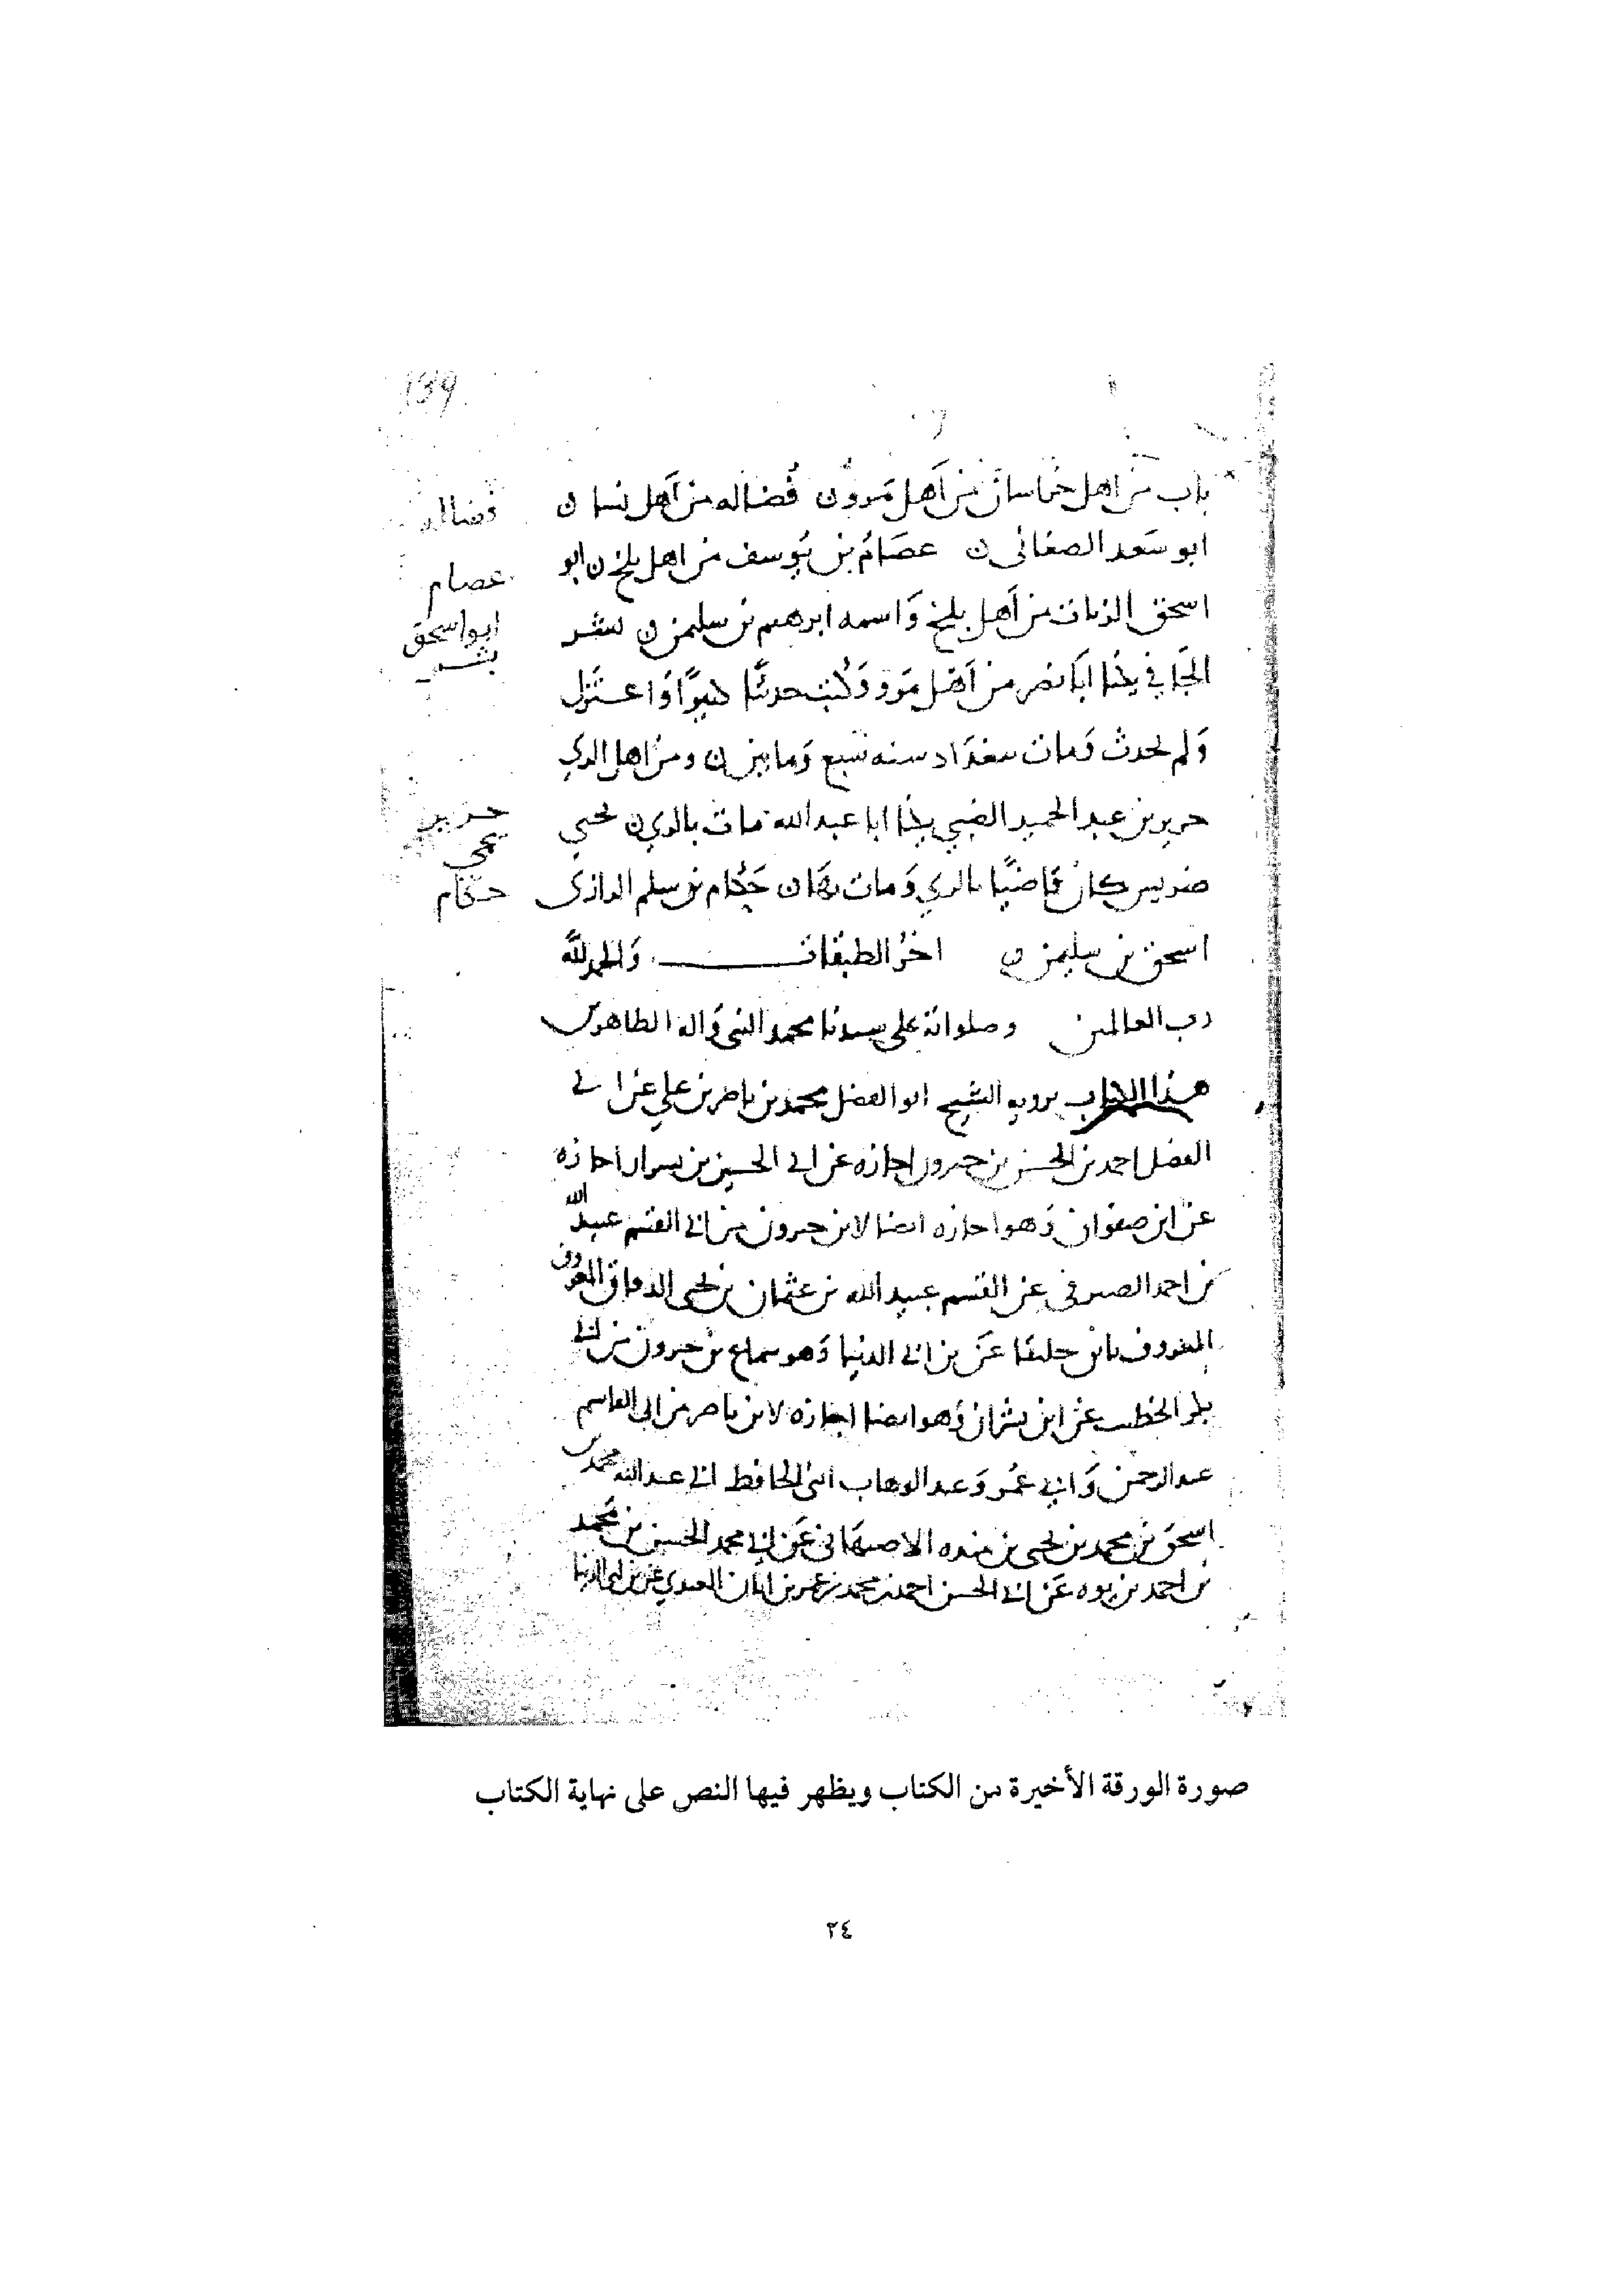 139
باب من اهل خراسان من اهل مرو ن فضاله من اهل نسا ن
ابو سعد الصغاني ن عصام بن يوسف من اهل بلخ ن ابو
اسحق الزيات من اهل بلخ واسمه ابرهيم بن سليمن ن بشر
الحافي يكنا ابا نصر من اهل مرو وكتب حديثا كثيرا واعتزل
ولم يحدث ومات ببغداد سنه سبع ومايتين ن ومن اهل الري
جرير بن عبد الحميد الضبي يكنا ابا عبد الله مات بالري ن يحيى
ضريس كان قاضيا بالري ومات بها ن حكام بن سلم الرازي
اسحق بن سليمن ن اخر الطبقات والحمد لله
رب العالمين وصلواته على سيدنا محمد النبي واله الطاهرين
هذا الكتاب يرويه الشيخ ابو الفضل محمد بن ناصر بن علي عن ابي
الفضل احمد بن الحسن بن خيرون اجازه عن ابي الحسين بن بشران اجازه
عن ابن صفوان وهو اجازه ايضا لابن خيرون من ابي القسم عبيد الله
بن احمد الصيرفي عن القسم عبيد الله بن عثمان بن يحيى الدقاق المعروف
المعروف بابن جليقا عن بن ابي الدنيا وهو سماع بن خيرون من ابي
بكر الخطيب عن ابن بشران وهو ايضا اجازه لابن ناصر من ابي القاسم
عبد الرحمن وابي عمرو عبد الوهاب ابني الحافظ ابي عبد الله محمد بن
اسحق بن محمد بن يحيى بن منده الاصبهاني عن ابي محمد الحسن بن محمد
بن احمد بن يوه عن ابي الحسن احمد بن محمد بن عمر بن ابان العبدي عن بن ابي الدنيا
فضاله
عصام
ابو اسحق
بشر
جرير
يحيى
حكام
صورة الورقة الأخيرة من الكتاب ويظهر فيها النص على نهاية الكتاب
٢٤